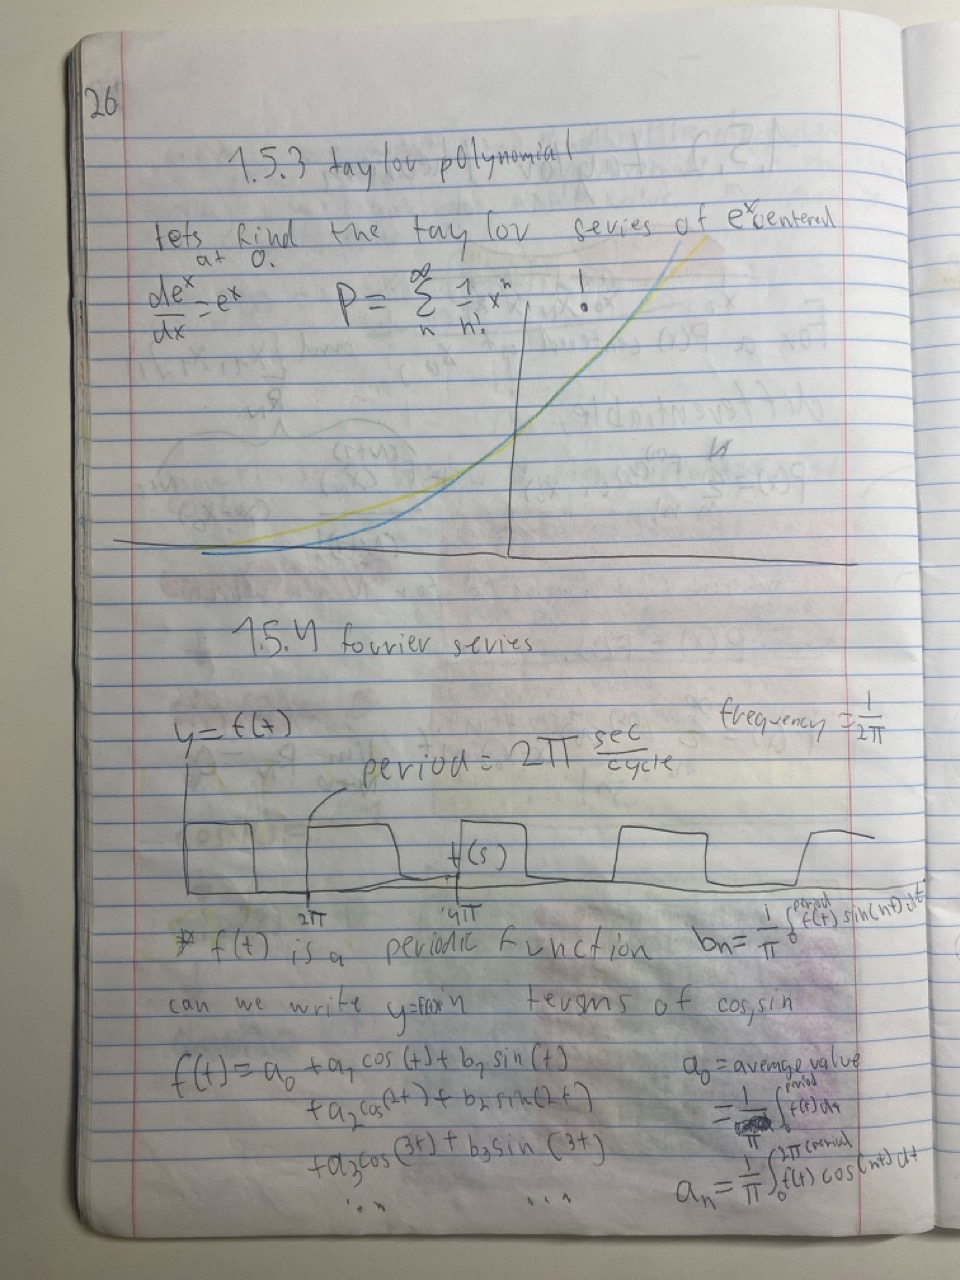 26
1.5.3 taylor polynomial
lets find the taylor series of e^x centered
at 0.
de^x/dx = e^x    P = ∞ Σ n 1/n! x^n    !
1.5.4 fourier series
y = f(t)    frequency = 1/2π
period = 2π sec/cycle
t(s)
2π    4π
* f(t) is a periodic function    bn = 1/π ∫_0^period f(t) sin(nt) dt
can we write y=f(t) in terms of cos, sin
f(t) = a_0 + a_1 cos(t) + b_1 sin(t)    a_0 = average value
+ a_2 cos(2t) + b_2 sin(2t)    = 1/π ∫_0^period f(t) dt
+ a_3 cos(3t) + b_3 sin(3t)    a_n = 1/π ∫_0^2π (period) f(t) cos(nt) dt
...    ...